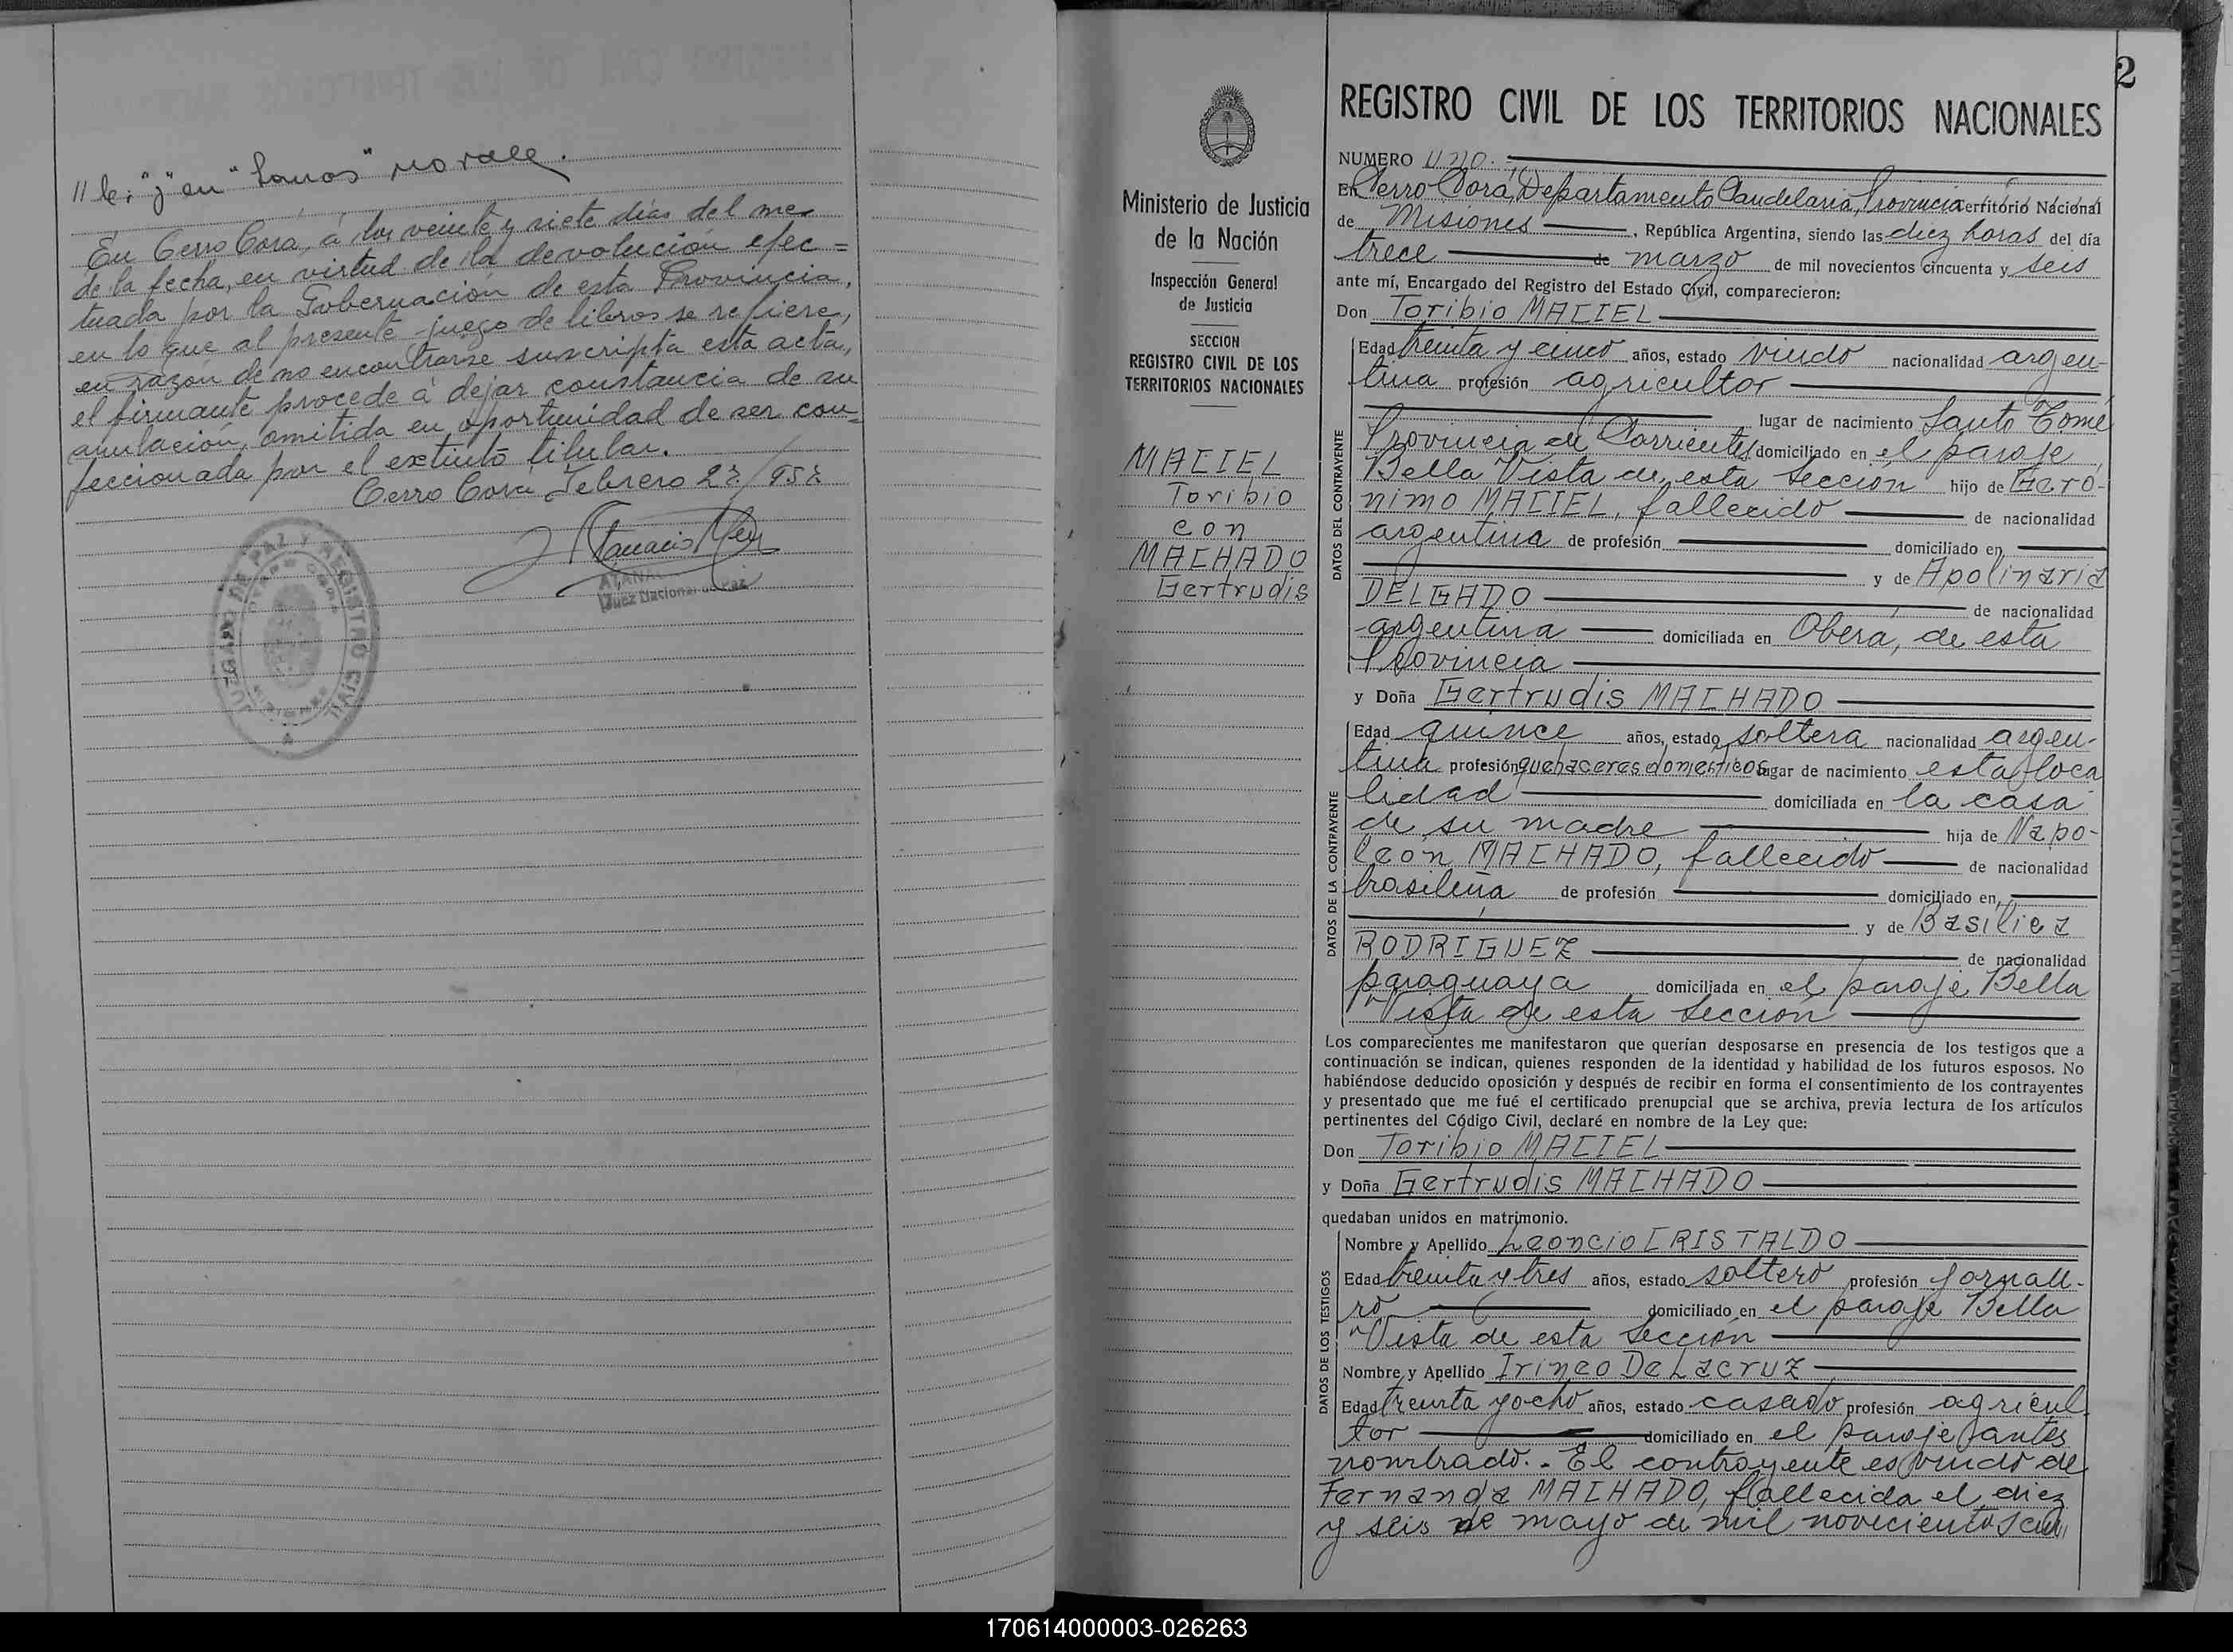 "j" en "Lanos" no vale.
En Cerro Corá, á los veinte y siete días del mes
de la fecha, en virtud de la devolución efec=
tuada por la Gobernación de esta Provincia,
en lo que al presente juego de libros se refiere,
en razón de no encontrarse suscripta esta acta,
el firmante procede á dejar constancia de su
anulación, omitida en oportunidad de ser con=
feccionada por el extinto titular.
Cerro Corá Febrero
JUZGADO DE PAZ Y REGISTRO CIVIL
CERRO CORA
MISIONES
Juez Nacional de Paz
2
Ministerio de Justicia
de la Nación
Inspección General
de Justicia
SECCION
REGISTRO CIVIL DE LOS
TERRITORIOS NACIONALES
MACIEL
Toribio
con
MACHADO
Gertrudis
REGISTRO CIVIL DE LOS TERRITORIOS NACIONALES
NUMERO uno.
En Cerro Corá, Departamento Candelaria, Provincia Territorio Nacional
de Misiones, República Argentina, siendo las diez horas del día
trece de marzo de mil novecientos cincuenta y seis
ante mí, Encargado del Registro del Estado Civil, comparecieron:
Don Toribio MACIEL
DATOS DEL CONTRAYENTE
Edad treinta y cinco años, estado viudo nacionalidad argen-
tina profesión agricultor
lugar de nacimiento Santo Tomé
Provincia de Corrientes domiciliado en el paraje
Bella Vista de esta Sección hijo de Geró-
nimo MACIEL, fallecido de nacionalidad
argentina de profesión domiciliado en
y de Apolinaria
DELGADO de nacionalidad
argentina domiciliada en Oberá, de esta
Provincia
y Doña Gertrudis MACHADO
DATOS DE LA CONTRAYENTE
Edad quince años, estado soltera nacionalidad argen-
tina profesión quehaceres domésticos lugar de nacimiento esta loca
lidad domiciliada en la casa
de su madre hija de Napo-
león MACHADO, fallecido de nacionalidad
brasileña de profesión domiciliado en
y de Basilica
RODRIGUEZ de nacionalidad
paraguaya domiciliada en el paraje Bella
Vista de esta Sección
Los comparecientes me manifestaron que querían desposarse en presencia de los testigos que a
continuación se indican, quienes responden de la identidad y habilidad de los futuros esposos. No
habiéndose deducido oposición y después de recibir en forma el consentimiento de los contrayentes
y presentado que me fué el certificado prenupcial que se archiva, previa lectura de los artículos
pertinentes del Código Civil, declaré en nombre de la Ley que:
Don Toribio MACIEL
y Doña Gertrudis MACHADO
quedaban unidos en matrimonio.
DATOS DE LOS TESTIGOS
Nombre y Apellido Leoncio CRISTALDO
Edad treinta y tres años, estado soltero profesión jornale-
ro domiciliado en el paraje Bella
Vista de esta Sección
Nombre y Apellido Irineo De Lacruz
Edad treinta y ocho años, estado casado profesión agricul-
tor domiciliado en el paraje antes
nombrado.- El contrayente es viudo de
Fernanda MACHADO, fallecida el diez
y seis de mayo de mil novecientos cin
170614000003-026263